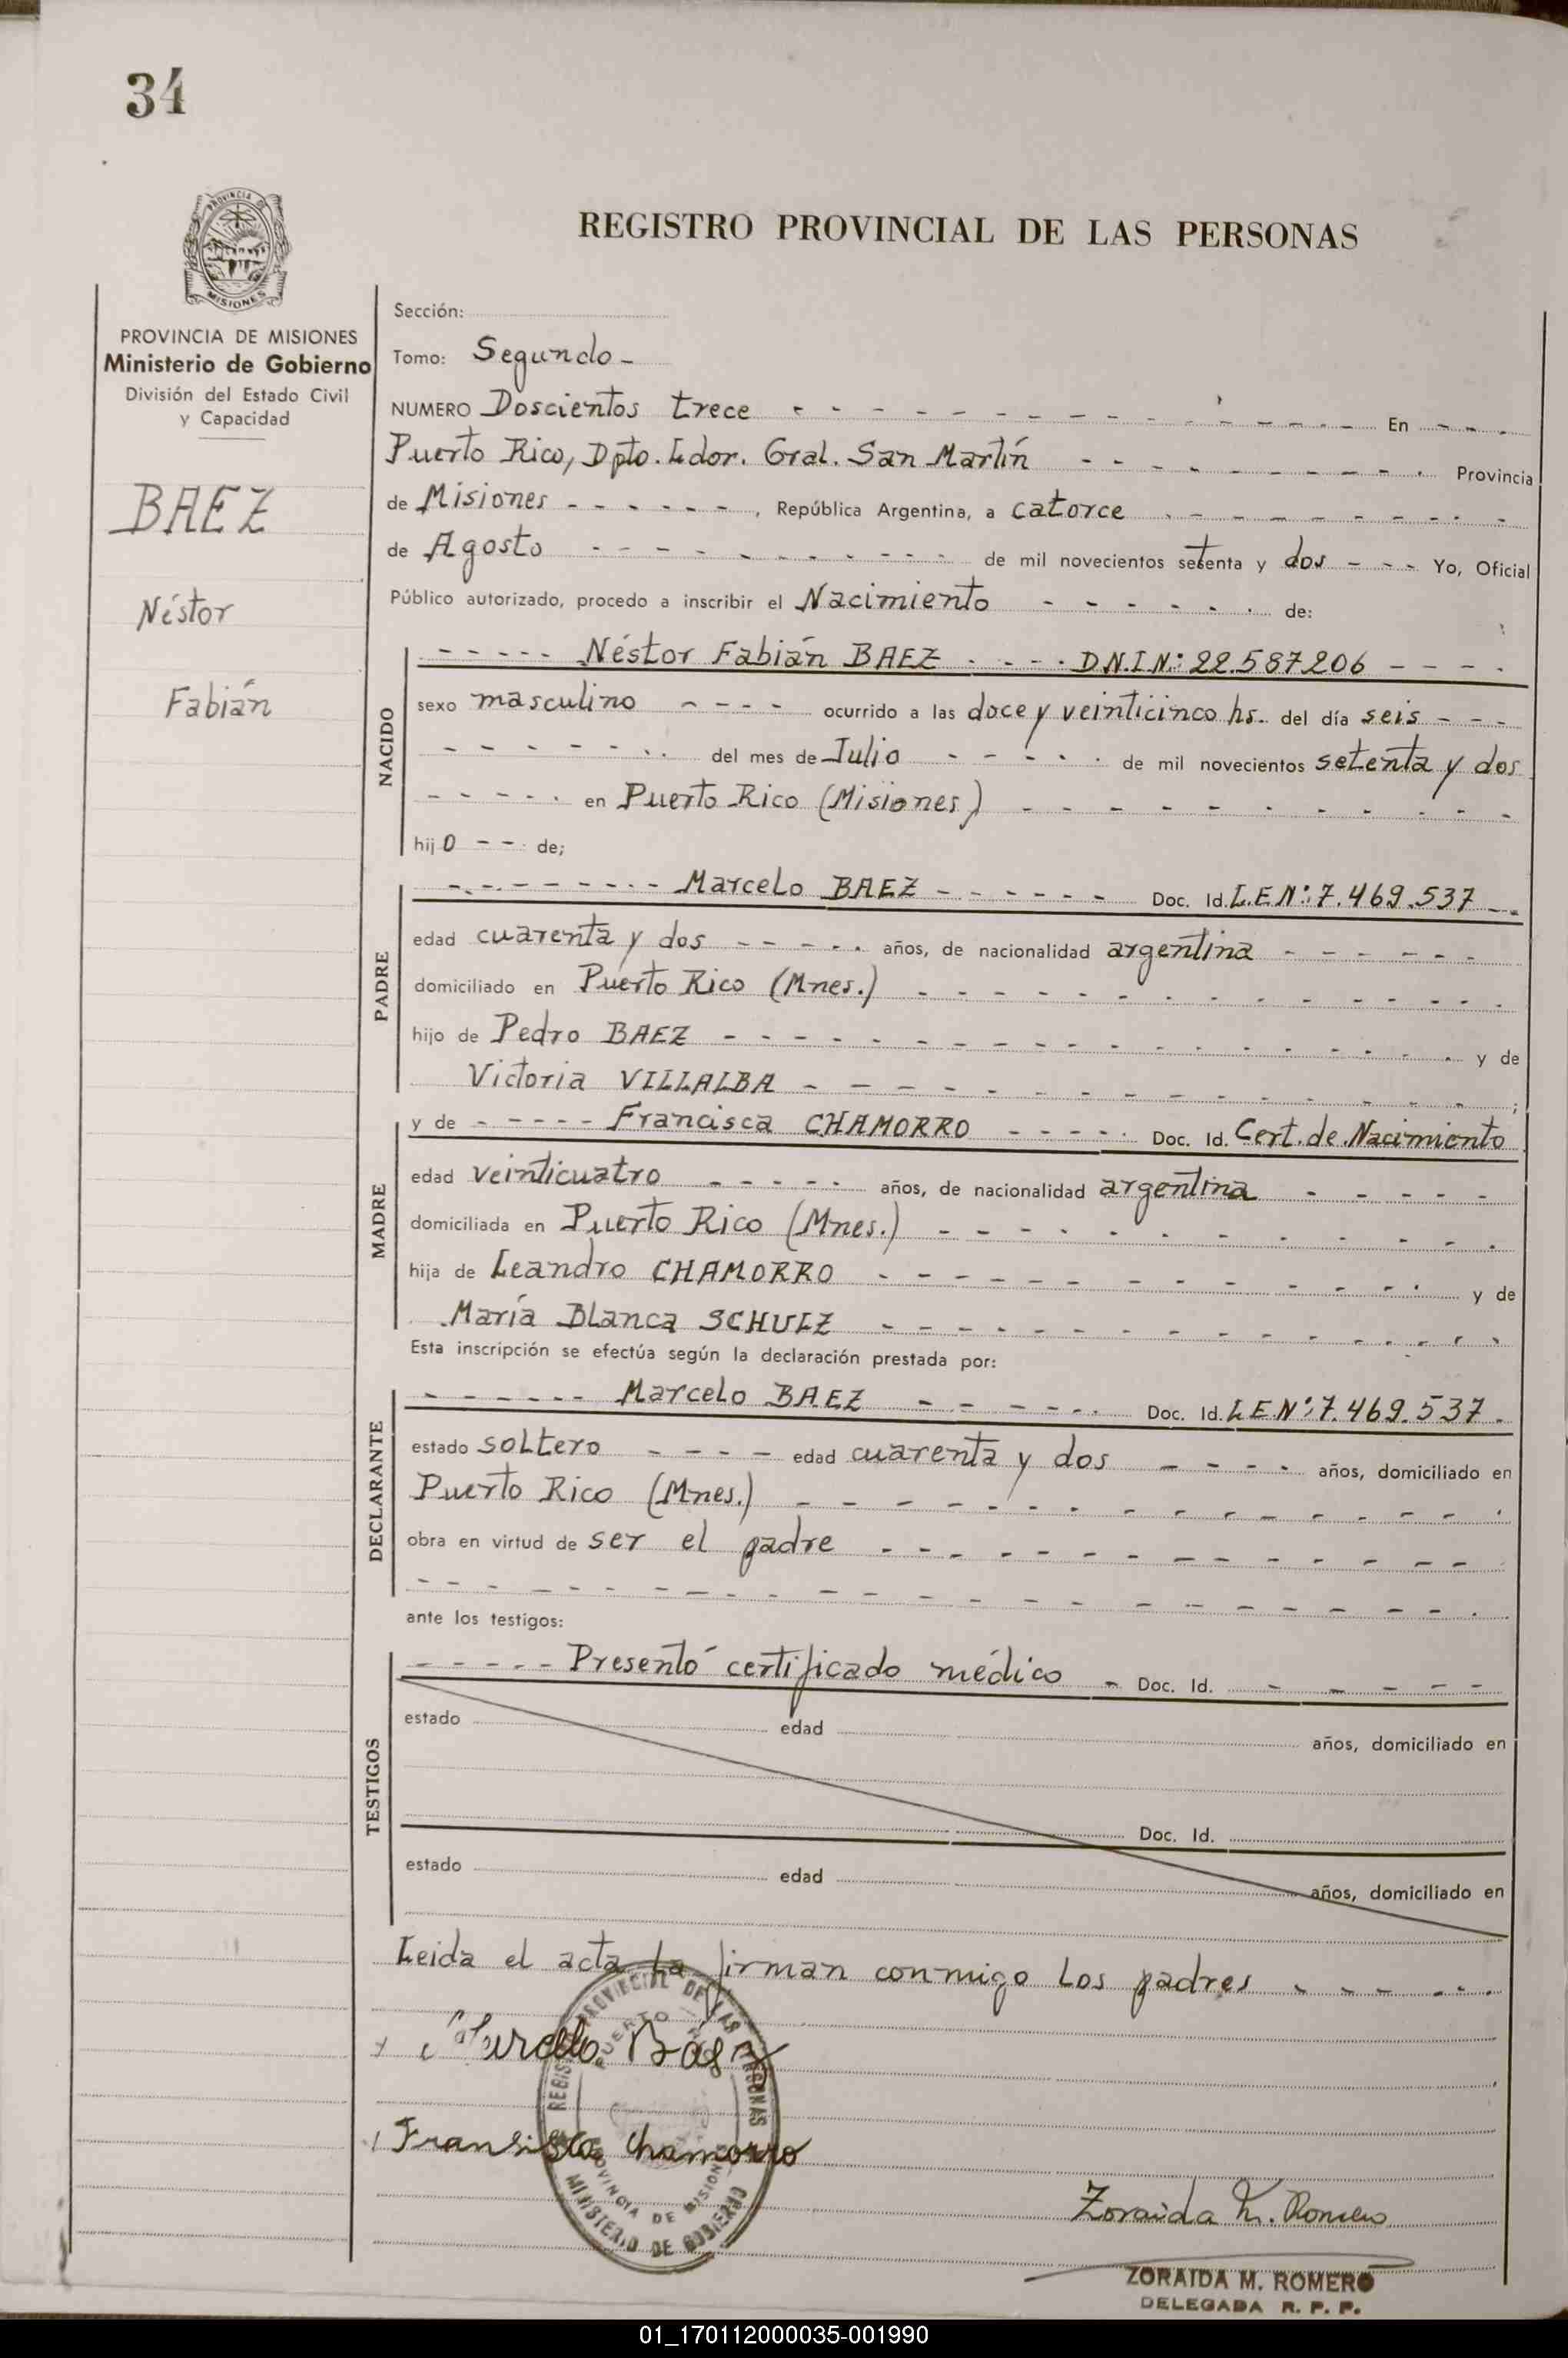 34
PROVINCIA DE
MISIONES
PROVINCIA DE MISIONES
Ministerio de Gobierno
División del Estado Civil
y Capacidad
BAEZ
Néstor
Fabián
REGISTRO PROVINCIAL DE LAS PERSONAS
Sección:
Tomo: Segundo -
NUMERO Doscientos trece - - - - - - - - - - - - En - - -
Puerto Rico, Dpto. Ldor. Gral. San Martín - - - - - - - - - Provincia
de Misiones - - - - - -, República Argentina, a catorce - - - - - - - - -
de Agosto - - - - - - - - - - de mil novecientos setenta y dos - - - Yo, Oficial
Público autorizado, procedo a inscribir el Nacimiento - - - - - - de:
NACIDO
- - - - - Néstor Fabián BAEZ - - - - D.N.I.N°: 22.587206 - - - -
sexo masculino - - - - ocurrido a las doce y veinticinco hs. del día seis - - -
- - - - - - - del mes de Julio - - - - - de mil novecientos setenta y dos
- - - - - en Puerto Rico (Misiones) - - - - - - - - - - -
hijo - - - de;
PADRE
- - - - - - - - Marcelo BAEZ - - - - - - Doc. Id. L.E.N°: 7.469.537 - -
edad cuarenta y dos - - - - - años, de nacionalidad argentina - - - - - -
domiciliado en Puerto Rico (Mnes.) - - - - - - - - - - - - -
hijo de Pedro BAEZ - - - - - - - - - - - - - - - - - y de
Victoria VILLALBA - - - - - - - - - - - - - - ;
MADRE
y de - - - - - Francisca CHAMORRO - - - - - Doc. Id. Cert. de Nacimiento
edad veinticuatro - - - - - años, de nacionalidad argentina - - - - -
domiciliada en Puerto Rico (Mnes.) - - - - - - - - - - -
hija de Leandro CHAMORRO - - - - - - - - - - - - y de
María Blanca SCHULZ - - - - - - - - - - - - -
Esta inscripción se efectúa según la declaración prestada por:
DECLARANTE
- - - - - - Marcelo BAEZ - - - - - - Doc. Id. L.E.N°: 7.469.537 -
estado soltero - - - - edad cuarenta y dos - - - - años, domiciliado en
Puerto Rico (Mnes.) - - - - - - - - - - - - - - -
obra en virtud de ser el padre - - - - - - - - - - - -
- - - - - - - - - - - - - - - - - - - -
ante los testigos:
TESTIGOS
- - - - - Presentó certificado médico - Doc. Id. - - - - -
estado edad años, domiciliado en
Doc. Id.
estado edad años, domiciliado en
Leida el acta la firman conmigo los padres - - - - - -
Marcelo Báez
REGISTRO PROVINCIAL DE LAS PERSONAS
PUERTO
PROVINCIA DE MISIONES
MINISTERIO DE GOBIERNO
Fransisca Chamorro
Zoraida M. Romero
ZORAIDA M. ROMERO
DELEGADA R. P. P.
01_170112000035-001990